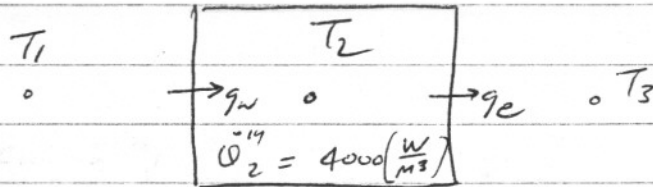 T₁ T₂
→ q_w → q_e T₃
Q̇₂''' = 4000 (W/m³)